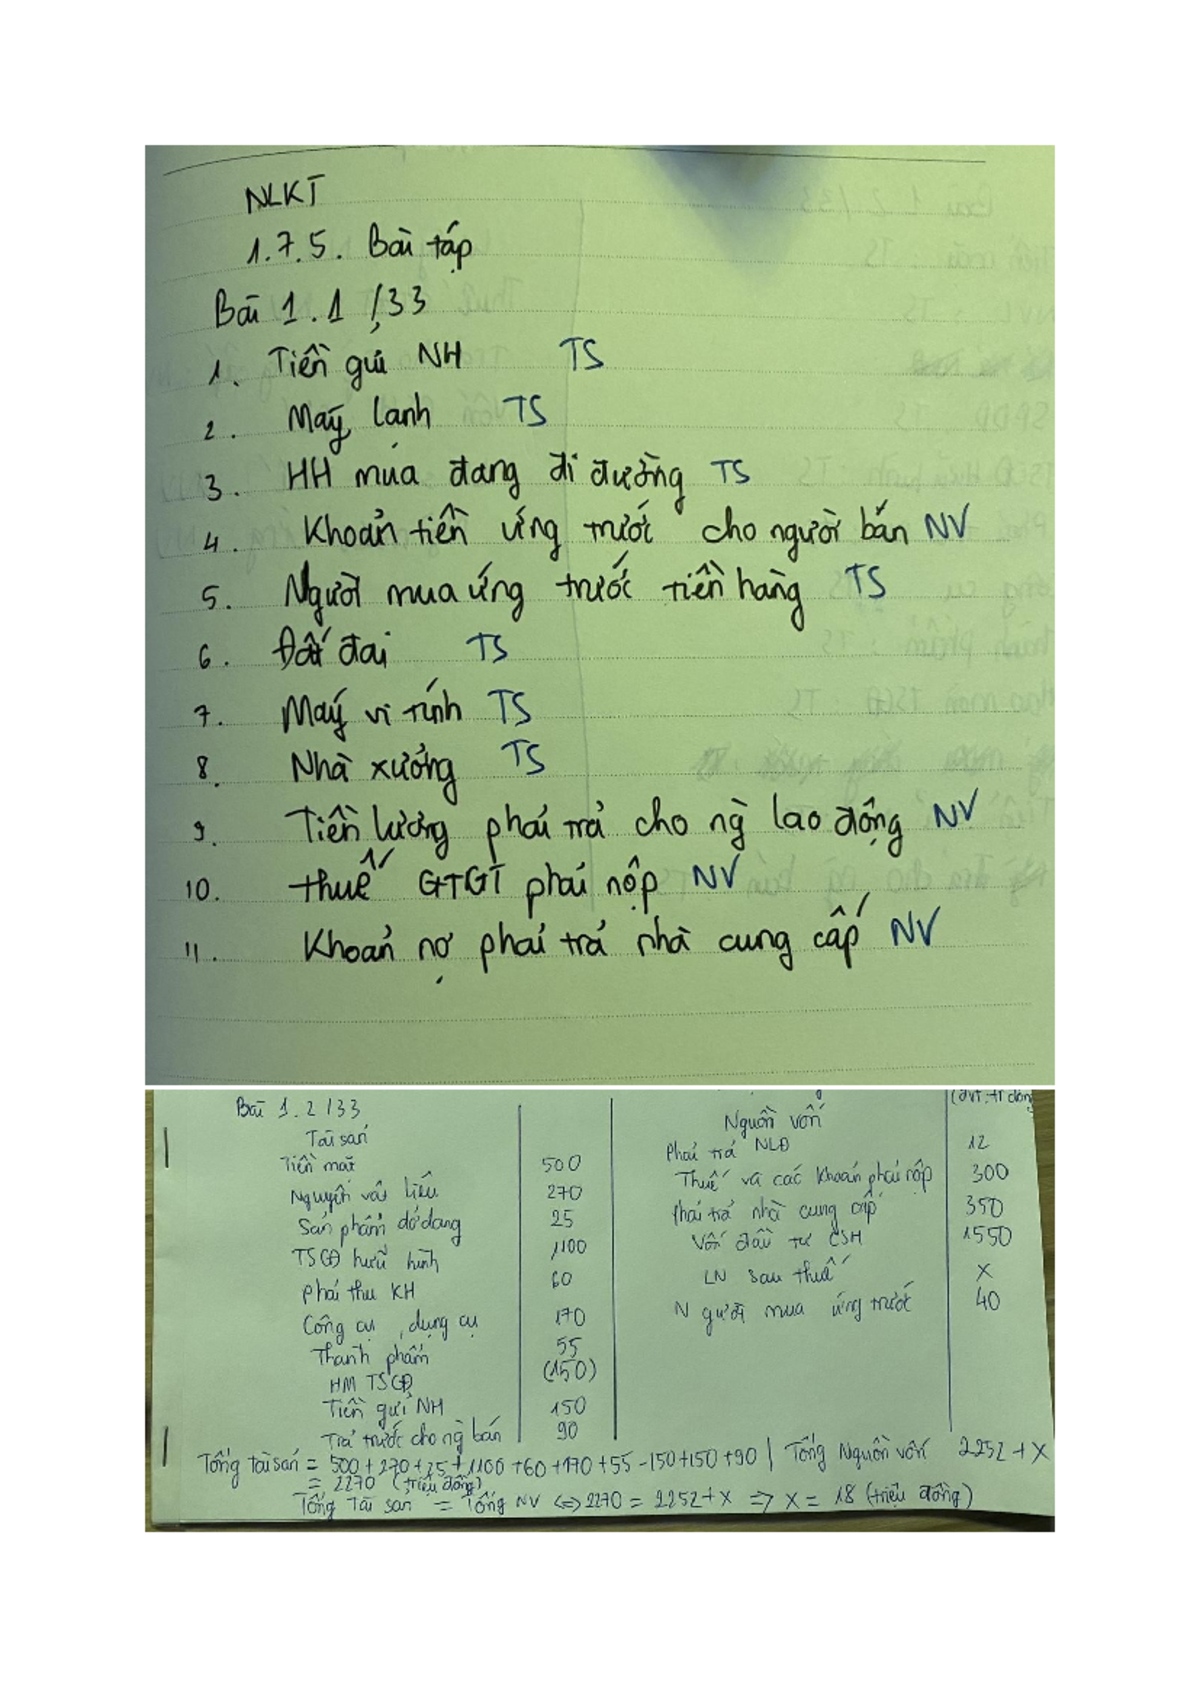 NLKT
1.7.5. Bài tập
Bài 1.1 /33
1. Tiền gửi NH TS
2. Máy lạnh TS
3. HH mua đang đi đường TS
4. Khoản tiền ứng trước cho người bán NV
5. Người mua ứng trước tiền hàng TS
6. Đất đai TS
7. Máy vi tính TS
8. Nhà xưởng TS
9. Tiền lương phải trả cho ng` lao động NV
10. thuế GTGT phải nộp NV
11. Khoản nợ phải trả nhà cung cấp NV
Bài 1.2/33
Tài sản
Tiền mặt 500
Nguyên vật liệu 270
Sản phẩm dở dang 25
TSCĐ hữu hình 1100
Phải thu KH 60
Công cụ, dụng cụ 170
Thành phẩm 55
HM TSCĐ (150)
Tiền gửi NH 150
Trả trước cho ng` bán 90
(đvt: tr đồng
Nguồn vốn
Phải trả NLĐ 12
Thuế và các khoản phải nộp 300
Phải trả nhà cung cấp 350
Vốn đầu tư CSH 1550
LN sau thuế x
Người mua ứng trước 40
Tổng tài sản = 500+270+25+1100+60+170+55-150+150+90 | Tổng Nguồn vốn 2252+x
= 2270 (triệu đồng)
Tổng Tài sản = Tổng NV <=> 2270 = 2252+x => x = 18 (triệu đồng)